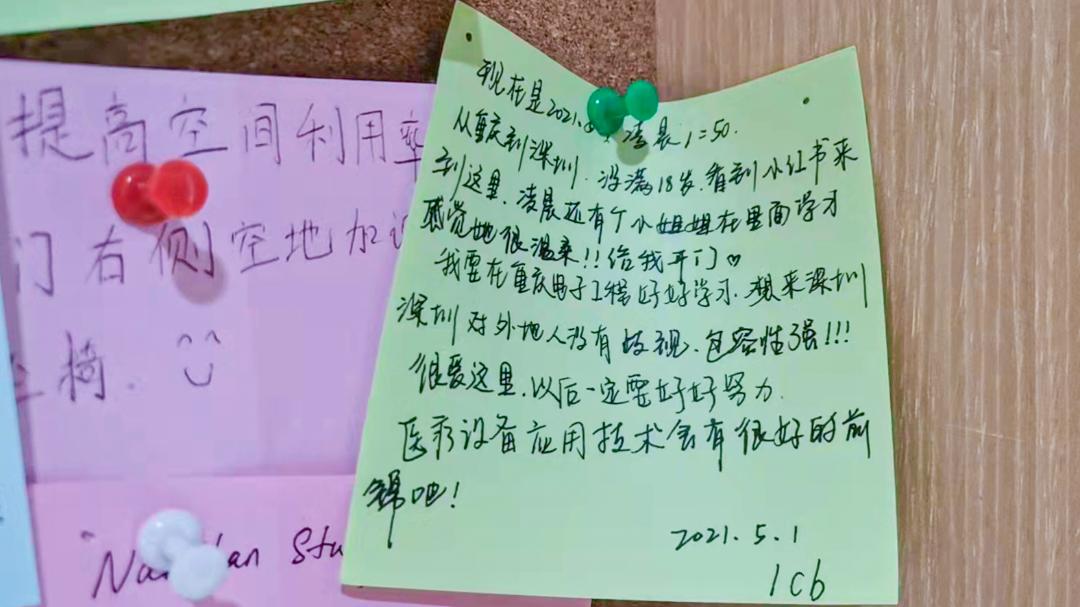 提高空间利用率
门右侧空地加设
椅.
"Nan an Stu
现在是2021. 凌晨1:50.
从重庆到深圳.没满18岁.看到小红书来
到这里.凌晨还有个小姐姐在里面学习
感觉她很温柔!!给我开门♡
我要在重庆电子工程好好学习.想来深圳
深圳对外地人没有歧视、包容性强!!!
很爱这里.以后一定要好好努力.
医疗设备应用技术会有很好的前
锦吧!
2021.5.1
lcb